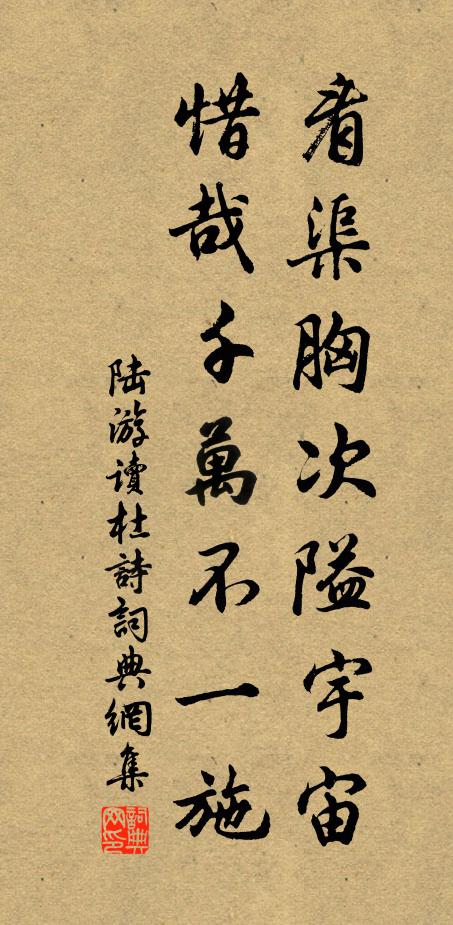 看渠胸次隘宇宙
惜哉千萬不一施
陆游讀杜詩詞典網集
詞典網印